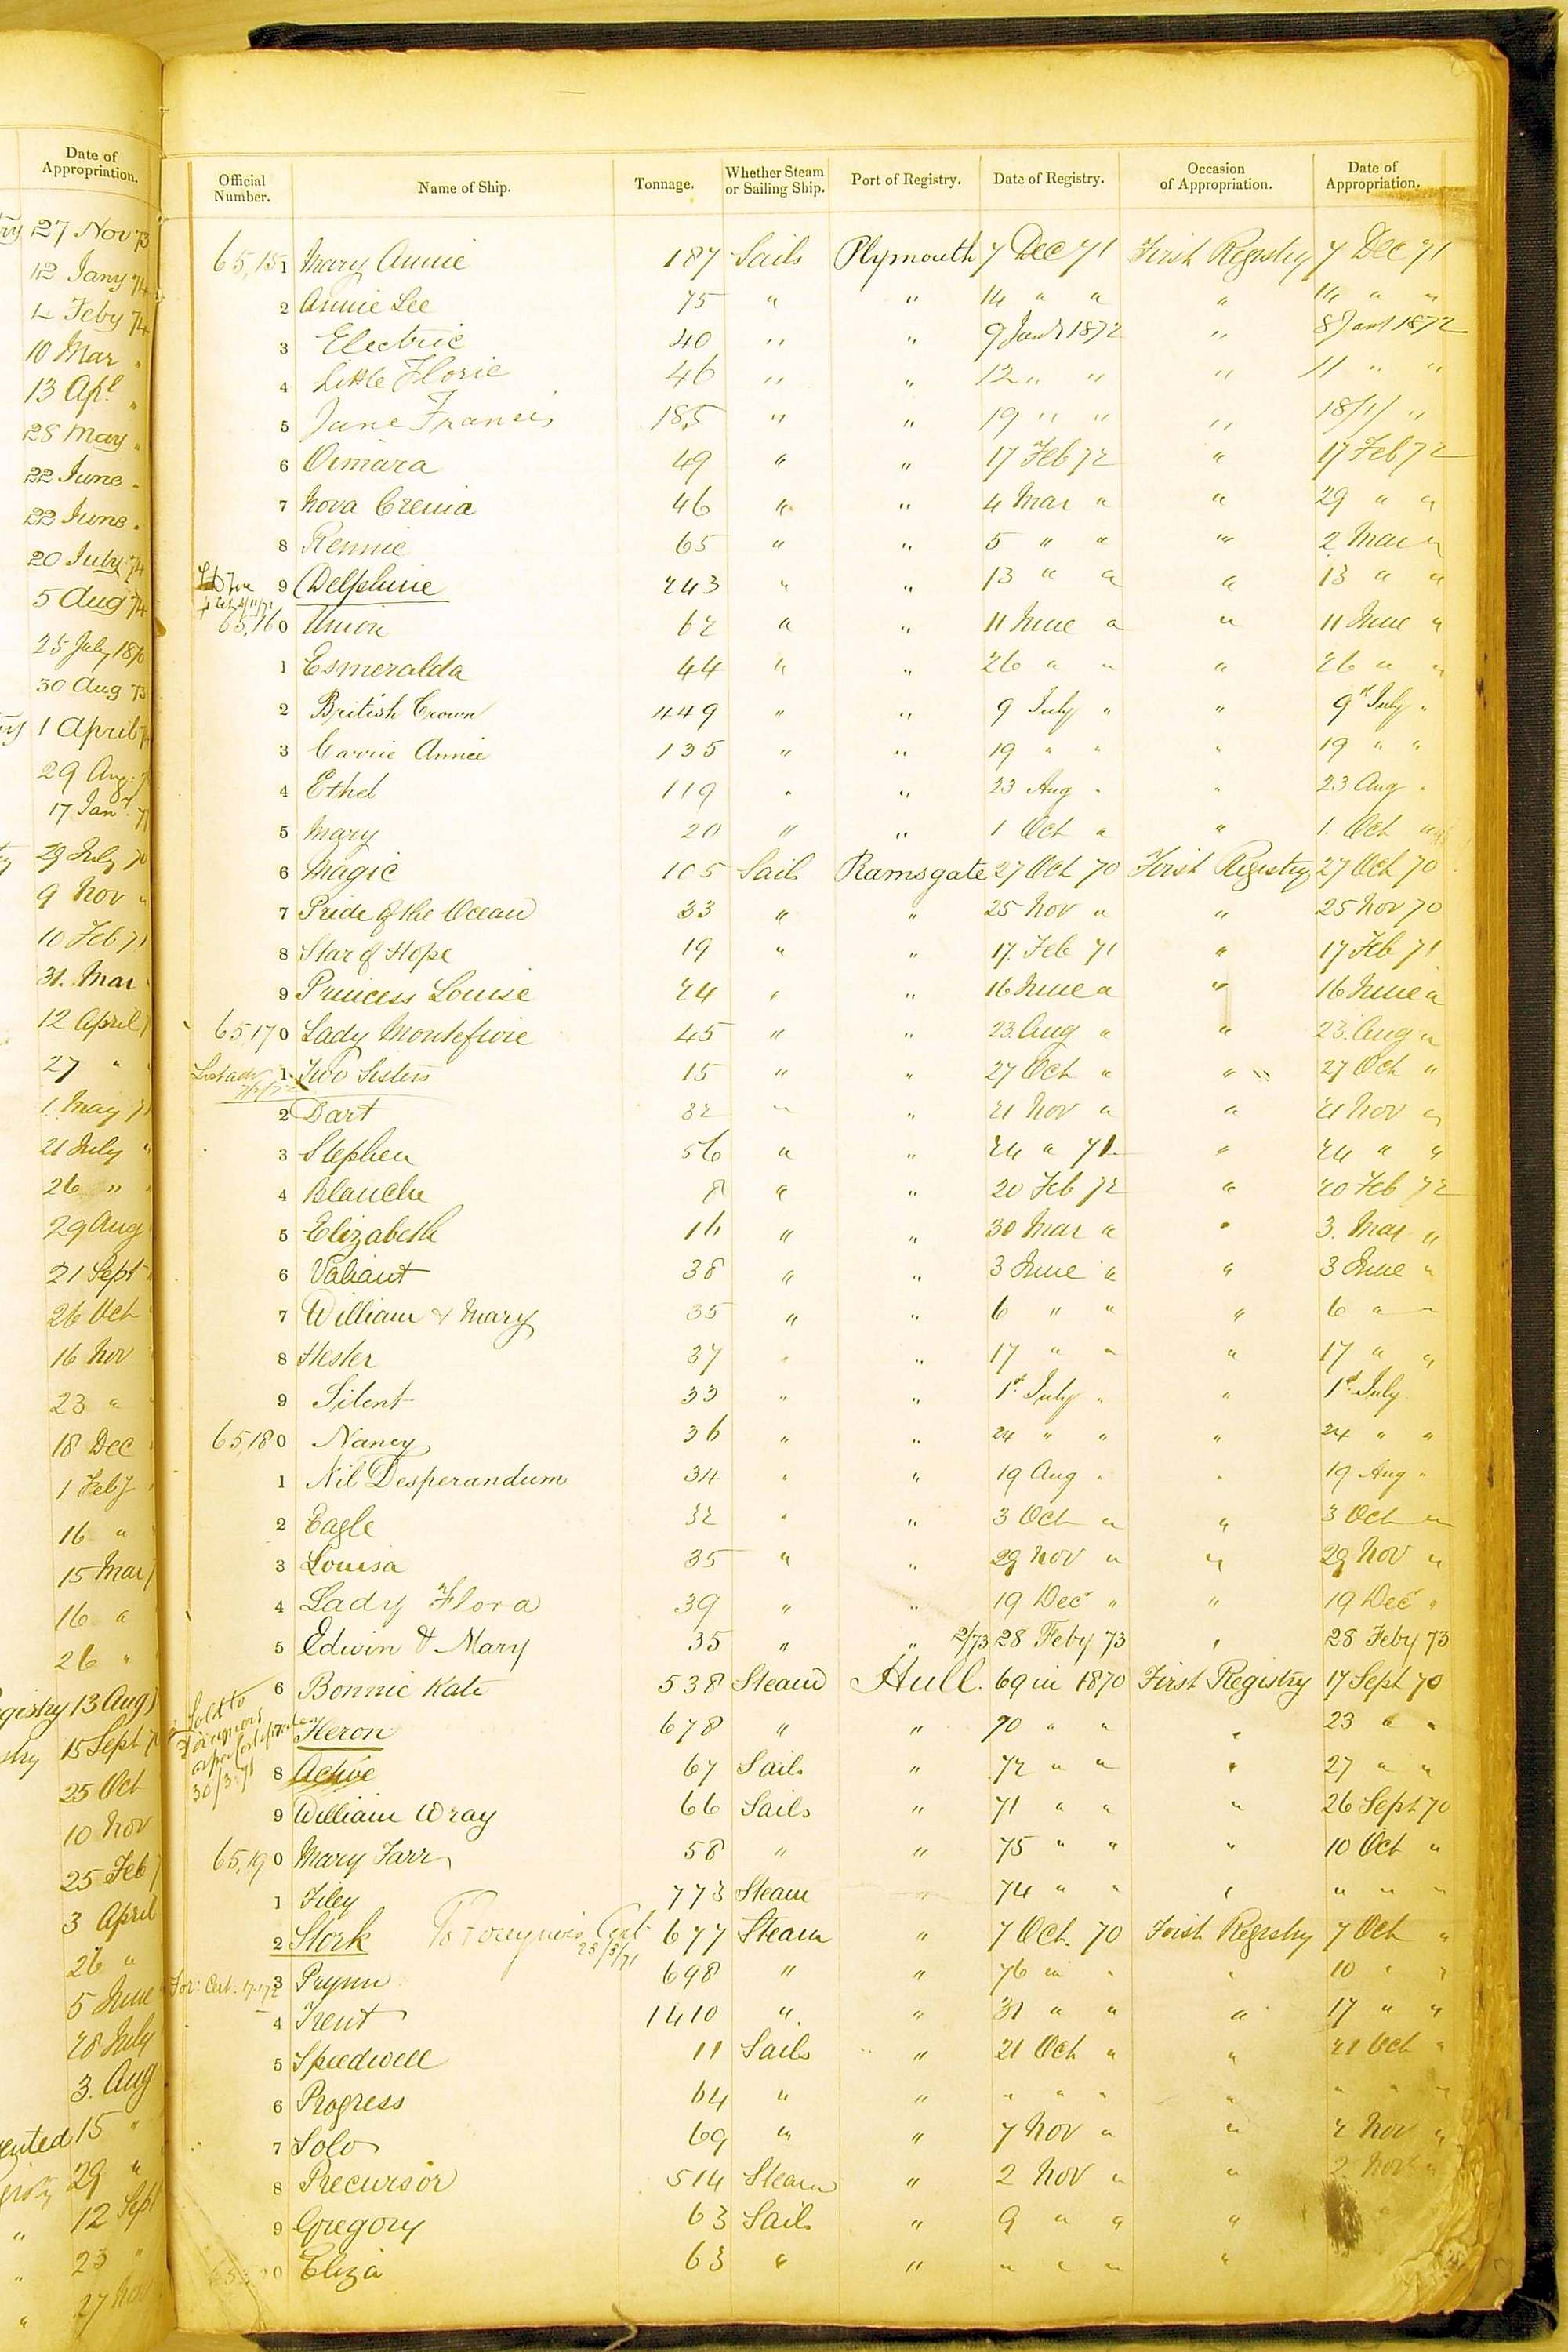 Date of
Appropriation.
27 Nov 73
12 Jany 74
4 Feby 74
10 Mar "
13 Apl "
28 May "
22 June "
22 June "
20 July 74
5 Aug 74
25 July 18
30 Aug 73
1 April
29 Aug
17 Jany
29 July 70
9 Nov "
10 Feb 71
31. Mar
12 April
27 "
1 May 71
21 July "
26 " "
29 Aug
21 Sept
26 Oct
16 Nov
23 "
18 Dec
1 Feb
16 "
15 Mar
16 "
26 "
gistry 13 Aug
stry 15 Sept 7
25 Oct
10 Nov
25 Feb
3 April
26 "
5 June
28 July
3. Aug
15 "
29 "
" 12 Sept
" 23 "
" 27 Nov
Official Number. Name of Ship. Tonnage. Whether Steam or Sailing Ship. Port of Registry. Date of Registry. Occasion of Appropriation. Date of Appropriation.
65,151 Mary Annie 187 Sails Plymouth 7 Dec 71 First Registry 7 Dec 71
2 Annie Lee 75 " " 14 " " " 14 " "
3 Electric 40 " " 9 Jany 1872 " 8 Jany 1872
4 Little Florie 46 " " 12 " " " 11 " "
5 Jane Francis 185 " " 19 " " " 18/1/ "
6 Oimara 49 " " 17 Feb 72 " 17 Feb 72
7 Nova Crenia 46 " " 4 Mar " " 29 " "
8 Rennie 65 " " 5 " " " 2 Mar "
9 Delphine 243 " " 13 " " " 13 " "
65,160 Union 62 " " 11 June " " 11 June "
1 Esmeralda 44 " " 26 " " " 26 " "
2 British Crown 449 " " 9 July " " 9th July "
3 Carrie Annie 135 " " 19 " " " 19 " "
4 Ethel 119 " " 23 Aug " " 23 Aug "
5 Mary 20 " " 1 Oct " " 1. Oct "
6 Magic 105 Sails Ramsgate 27 Oct 70 First Registry 27 Oct 70
7 Pride of the Ocean 33 " " 25 Nov " " 25 Nov 70
8 Star of Hope 19 " " 17. Feb 71 " 17 Feb 71
9 Princess Louise 24 " " 16 June " " 16 June "
65,170 Lady Montefiore 45 " " 23. Aug " " 23. Aug "
1 Two Sisters 15 " " 27 Oct " " 27 Oct "
2 Dart 32 " " 21 Nov " " 21 Nov "
3 Stephen 56 " " 24 " 71 " 24 " "
4 Blanche 8 " " 20 Feb 72 " 20 Feb 72
5 Elizabeth 16 " " 30 Mar " " 3. Mar "
6 Valiant 38 " " 3 June " " 3 June "
7 William & Mary 35 " " 6 " " " 6 " "
8 Hester 37 " " 17 " " " 17 " "
9 Silent 33 " " 1st July " " 1st July
65,180 Nancy 36 " " 24 " " " 24 " "
1 Nil Desperandum 34 " " 19 Aug " " 19 Aug "
2 Eagle 32 " " 3 Oct " " 3 Oct "
3 Louisa 35 " " 29 Nov " " 29 Nov "
4 Lady Flora 39 " " 19 Dec " " 19 Dec "
5 Edwin & Mary 35 " " 2/73 28 Feby 73 " 28 Feby 73
6 Bonnie Kate 538 Steam Hull. 69 in 1870 First Registry 17 Sept 70
Sold to Foreigners
30/3/71
Heron 678 " " 70 " " " 23 " "
8 Active 67 Sails " 72 " " " 27 " "
9 William Wray 66 Sails " 71 " " " 26 Sept 70
65,190 Mary Farr 58 " " 75 " " " 10 Oct "
1 Filey 773 Steam " 74 " " " " " "
2 Stork To Foreigners Cert 23/3/71 677 Steam " 7 Oct. 70 First Registry 7 Oct "
3 Prynn 698 " " 76 in " " 10 " "
4 Trent 1410 " " 31 " " " 17 " "
5 Speedwell 11 Sails " 21 Oct " " 21 Oct "
6 Progress 64 " " " " " " " " "
7 Solo 69 " " 7 Nov " " 2 Nov "
8 Precursor 514 Steam " 2 Nov " " 2. Nov "
9 Gregory 63 Sails " 9 " " "
0 Eliza 63 " " " " " "